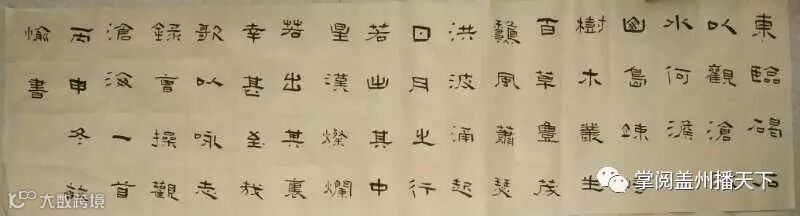 東臨碣石
以觀滄
水何澹
山島竦
樹木叢生
百草豐茂
龝風蕭瑟
洪波涌起
日月之行
若出其中
星漢燦爛
若出其裏
幸甚至哉
歌以咏志
錄曹操觀
滄海一首
丙申冬
愉書
掌阅盖州播天下
10100 大数跨境